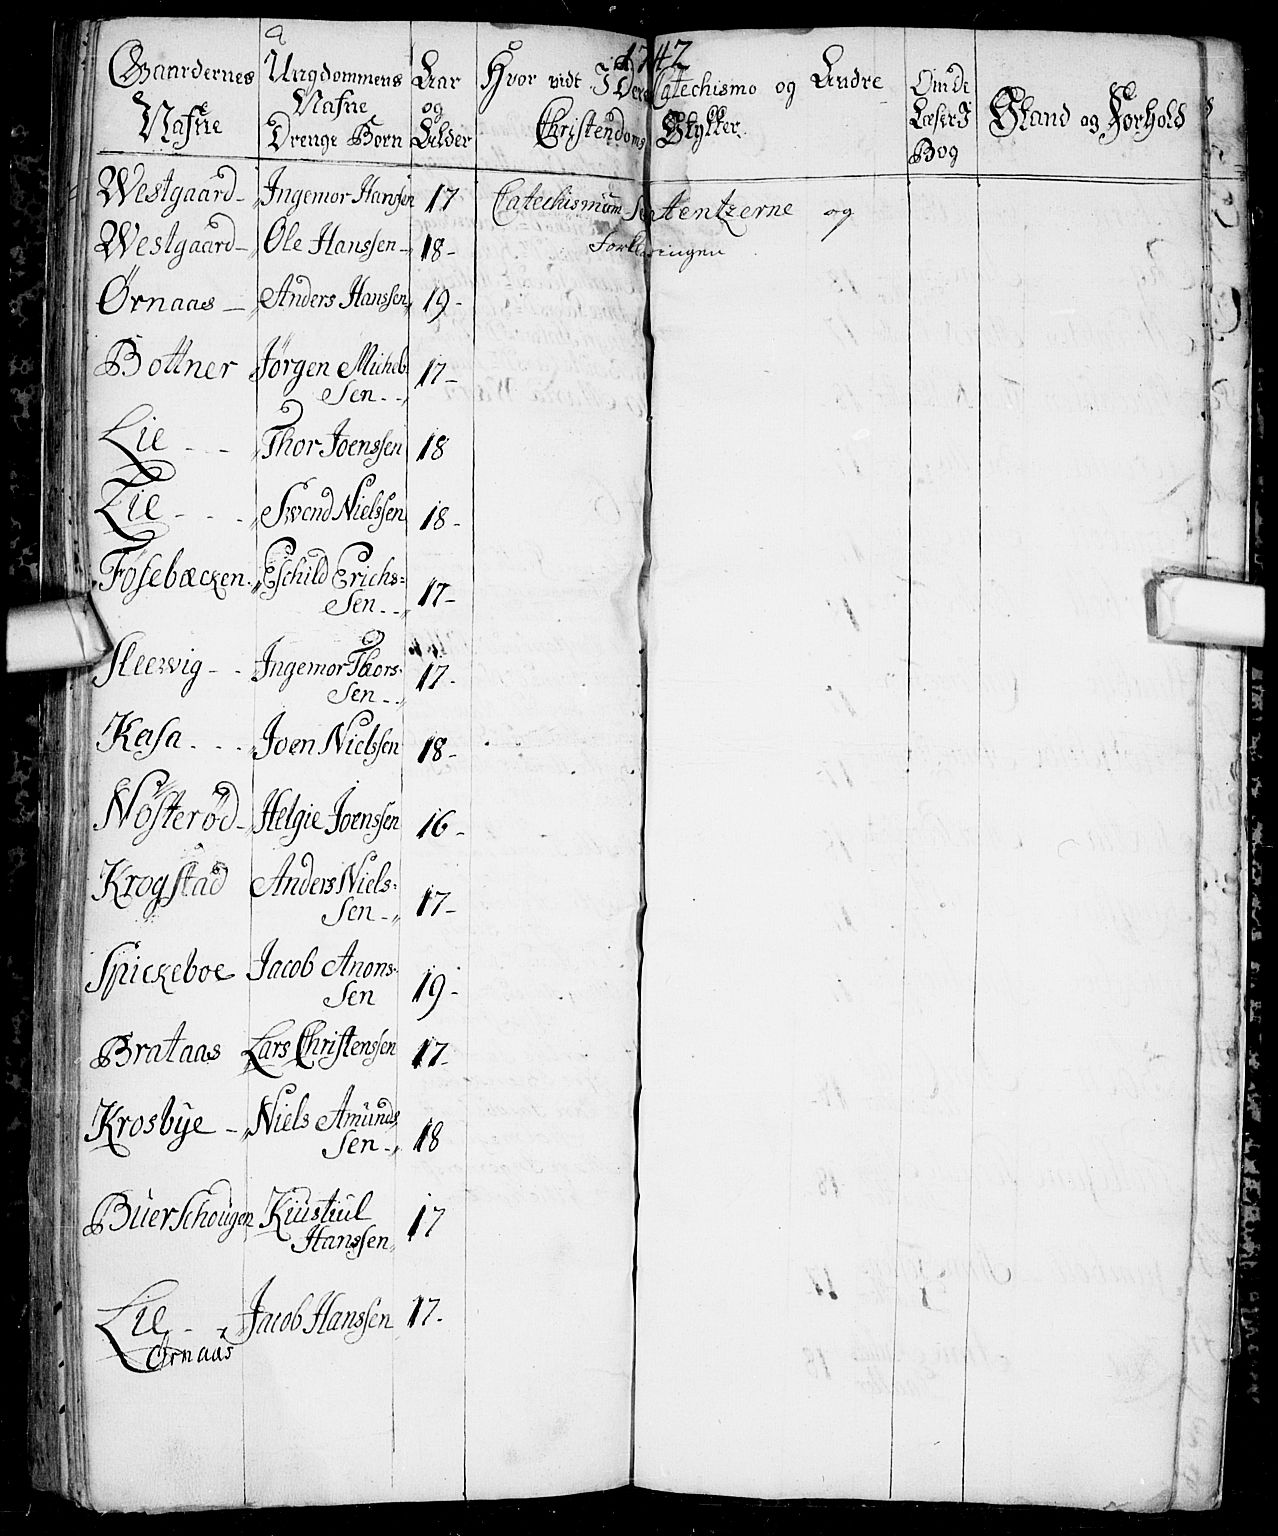 1742
Gaardernes Nafne
Ungdommens Nafne Drenge Børn
Aar og Alder
Hvor vidt I Deres Catechismo og Andre Christendoms Stykker
Om de Læser I Bog
Stand og Forhold
Westgaard - Ingemor Hanssen 17 Catechismum Sententzerne og
Westgaard - Ole Hanssen - 18 - Forklaringen
Ørnaas - Anders Hanssen 19 -
Bottner Jørgen Michels
Sen - - 17 -
Lie - - - Thor Joenssen 18
Lie - - - Swend Nielssen 18 -
Fosebæcken - Eschild Erichs=
Sen - - 17 -
Sleewig - - Ingemor Thors=
Sen - - 17 -
Kasa - - - Joen Nielssen 18 -
Nøsterød - Helgie Joenssen 16 -
Krogstad Anders Niels=
Sen - 17 -
Spickeboe Jacob Anons=
Sen 19 -
Brataas Lars Christenssen 17 -
Krosbÿe - Niels Amunds
Sen - 18
Buerschougen Kiustiul
Hanssen 17
Lie - - Jacob Hanssen 17 -
Ørnaas